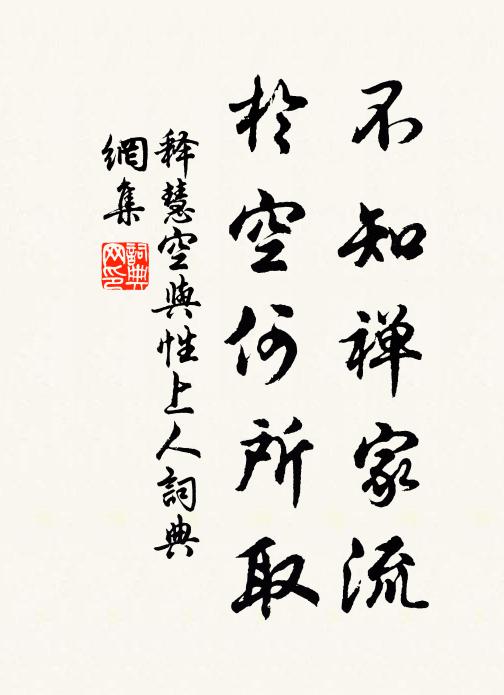 不知禅家流
於空何所取
释慧空與性上人詞典
網集
詞典
网印